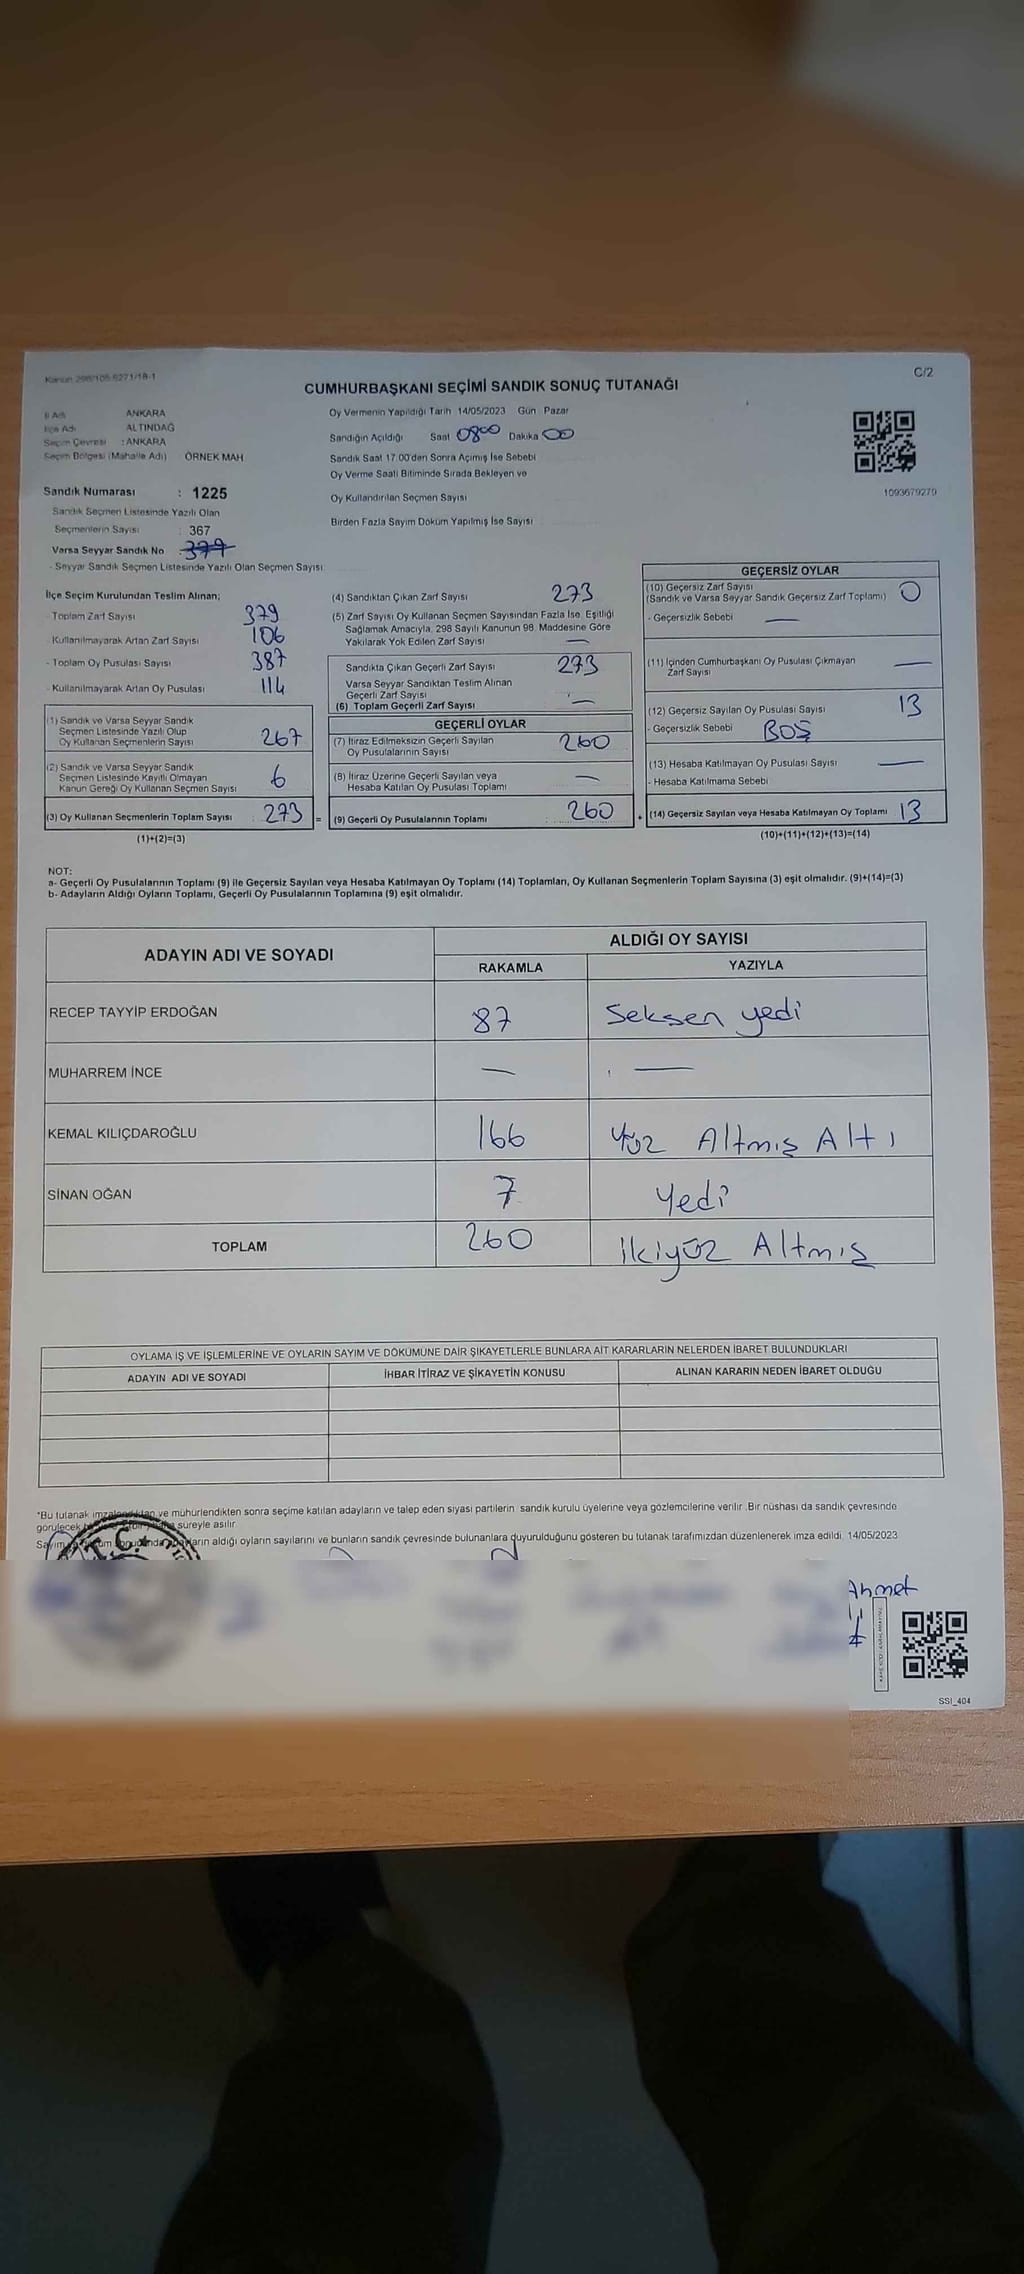 Kanun 298/105.6271/18-1
C/2
CUMHURBAŞKANI SEÇİMİ SANDIK SONUÇ TUTANAĞI
İl Adı ANKARA
İlçe Adı ALTINDAĞ
Seçim Çevresi : ANKARA
Seçim Bölgesi (Mahalle Adı) ÖRNEK MAH
Sandık Numarası : 1225
Sandık Seçmen Listesinde Yazılı Olan
Seçmenlerin Sayısı : 367
Varsa Seyyar Sandık No
- Seyyar Sandık Seçmen Listesinde Yazılı Olan Seçmen Sayısı
Oy Vermenin Yapıldığı Tarih 14/05/2023 Gün Pazar
Sandığın Açıldığı Saat 0800 Dakika 00
Sandık Saat 17.00'den Sonra Açımış İse Sebebi
Oy Verme Saati Bitiminde Sırada Bekleyen ve
Oy Kullandırılan Seçmen Sayısı
Birden Fazla Sayım Döküm Yapılmış İse Sayısı
1093679279
İlçe Seçim Kurulundan Teslim Alınan;
- Toplam Zarf Sayısı 379
- Kullanılmayarak Artan Zarf Sayısı 106
- Toplam Oy Pusulası Sayısı 387
- Kullanılmayarak Artan Oy Pusulası 114
(1) Sandık ve Varsa Seyyar Sandık
Seçmen Listesinde Yazılı Olup
Oy Kullanan Seçmenlerin Sayısı 267
(2) Sandık ve Varsa Seyyar Sandık
Seçmen Listesinde Kayıtlı Olmayan
Kanun Gereği Oy Kullanan Seçmen Sayısı 6
(3) Oy Kullanan Seçmenlerin Toplam Sayısı : 273 =
(1)+(2)=(3)
(4) Sandıktan Çıkan Zarf Sayısı 273
(5) Zarf Sayısı Oy Kullanan Seçmen Sayısından Fazla İse, Eşitliği
Sağlamak Amacıyla, 298 Sayılı Kanunun 98. Maddesine Göre
Yakılarak Yok Edilen Zarf Sayısı —
Sandıkta Çıkan Geçerli Zarf Sayısı 273
Varsa Seyyar Sandıktan Teslim Alınan
Geçerli Zarf Sayısı
(6) Toplam Geçerli Zarf Sayısı —
GEÇERLİ OYLAR
(7) İtiraz Edilmeksizin Geçerli Sayılan
Oy Pusulalarının Sayısı 260
(8) İtiraz Üzerine Geçerli Sayılan veya
Hesaba Katılan Oy Pusulası Toplamı —
(9) Geçerli Oy Pusulalarının Toplamı : 260 +
GEÇERSİZ OYLAR
(10) Geçersiz Zarf Sayısı
(Sandık ve Varsa Seyyar Sandık Geçersiz Zarf Toplamı) 0
- Geçersizlik Sebebi —
(11) İçinden Cumhurbaşkanı Oy Pusulası Çıkmayan
Zarf Sayısı —
(12) Geçersiz Sayılan Oy Pusulası Sayısı 13
- Geçersizlik Sebebi BOŞ
(13) Hesaba Katılmayan Oy Pusulası Sayısı —
- Hesaba Katılmama Sebebi
(14) Geçersiz Sayılan veya Hesaba Katılmayan Oy Toplamı 13
(10)+(11)+(12)+(13)=(14)
NOT:
a- Geçerli Oy Pusulalarının Toplamı (9) ile Geçersiz Sayılan veya Hesaba Katılmayan Oy Toplamı (14) Toplamları, Oy Kullanan Seçmenlerin Toplam Sayısına (3) eşit olmalıdır. (9)+(14)=(3)
b- Adayların Aldığı Oyların Toplamı, Geçerli Oy Pusulalarının Toplamına (9) eşit olmalıdır.
ADAYIN ADI VE SOYADI ALDIĞI OY SAYISI
RAKAMLA YAZIYLA
RECEP TAYYİP ERDOĞAN 87 Seksen yedi
MUHARREM İNCE — —
KEMAL KILIÇDAROĞLU 166 Yüz Altmış Altı
SİNAN OĞAN 7 Yedi
TOPLAM 260 ikiyüz Altmış
OYLAMA İŞ VE İŞLEMLERİNE VE OYLARIN SAYIM VE DÖKÜMÜNE DAİR ŞİKAYETLERLE BUNLARA AİT KARARLARIN NELERDEN İBARET BULUNDUKLARI
ADAYIN ADI VE SOYADI İHBAR İTİRAZ VE ŞİKAYETİN KONUSU ALINAN KARARIN NEDEN İBARET OLDUĞU
"Bu tutanak imzalandıktan ve mühürlendikten sonra seçime katılan adayların ve talep eden siyasi partilerin sandık kurulu üyelerine veya gözlemcilerine verilir. Bir nüshası da sandık çevresinde
görülecek süreyle asılır
aldığı oyların sayılarını ve bunların sandık çevresinde bulunanlara duyurulduğunu gösteren bu tutanak tarafımızdan düzenlenerek imza edildi. 14/05/2023
Ahmet
SSI_404